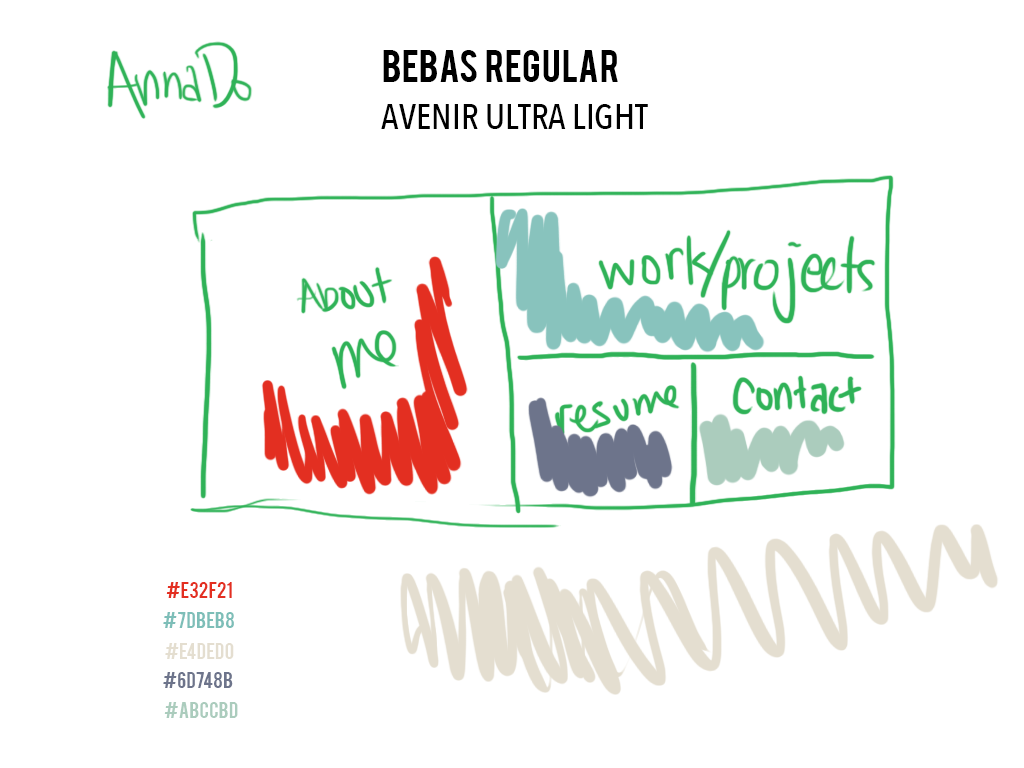 Anna Do
BEBAS REGULAR
AVENIR ULTRA LIGHT
About
me
work/projects
resume
Contact
#E32F21
#7DBEB8
#E4DED0
#6D748B
#ABCCBD